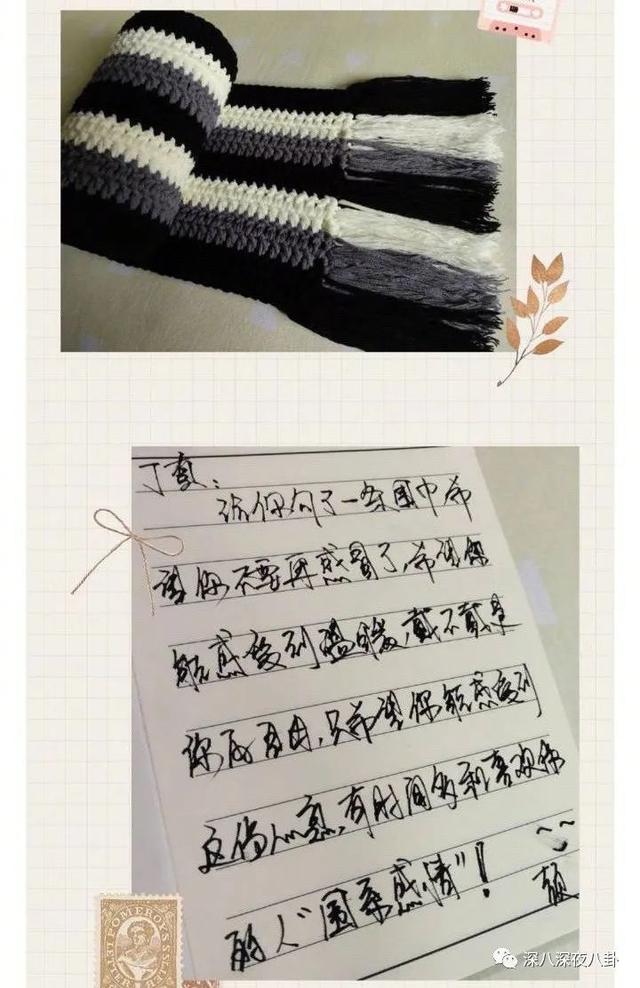 丁真：
给你勾了一条围巾希
望你不要再感冒了，希望你
能感受到温暖，戴不戴是
你的自由，只希望你能感受到
这份心意，有时间多和喜欢你
的人“围系感情”！
POMEROY'S
LETTER
深八深夜八卦